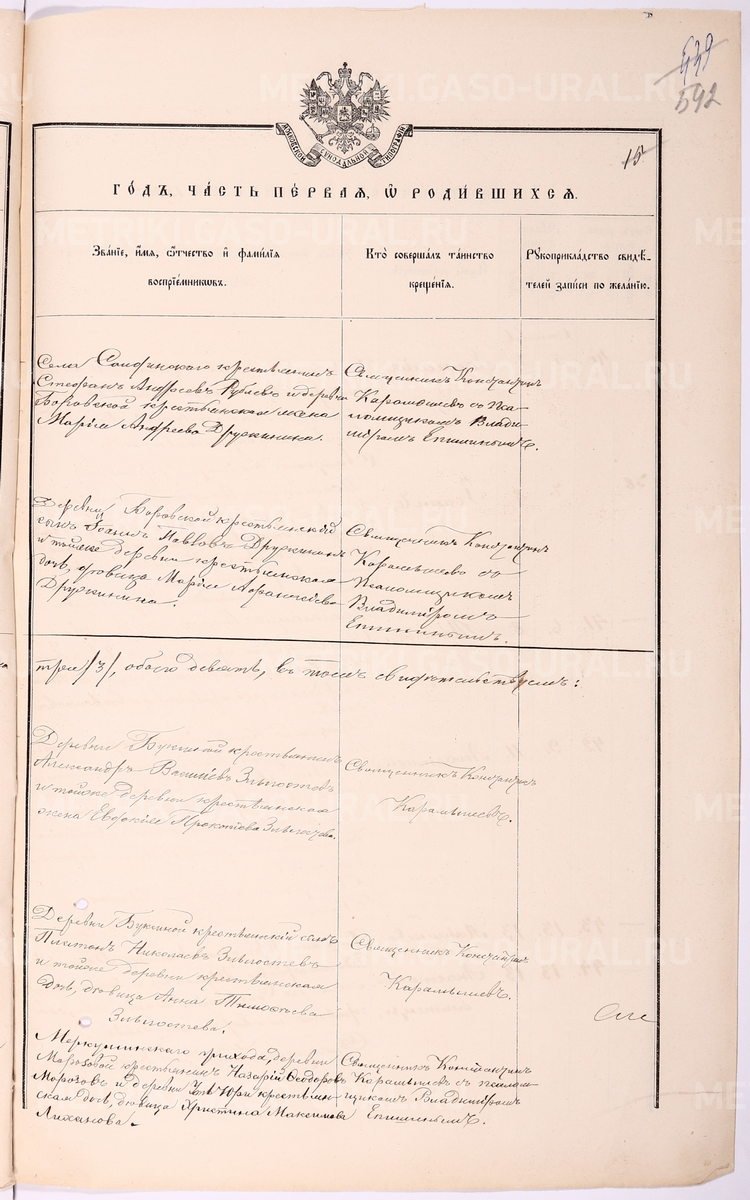 549
592
15
МОСКОВСКОЙ СУНОДАЛЬНОЙ ТИПОГРАФІИ
ГОДЪ, ЧАСТЬ ПЕРВАЯ, Ѡ РОДИВШИХСЯ.
Званіе, имя, отчество и фамилія
воспріемниковъ.
Кто совершалъ таинство
крещенія.
Рукоприкладство свидѣ-
телей записи по желанію.
Села крестьянинъ
Стефанъ Андреевъ и деревни
Боровской крестьянская жена
Марія Андреева Дружинина.
Священникъ Константинъ
Карамышевъ съ пса-
ломщикомъ Влади-
міромъ Епишинымъ.
Деревни Боровской крестьянскій
сынъ Іоаннъ Павловъ Дружининъ
и тойже деревни крестьянская
дочь, дѣвица Марія
Дружинина.
Священникъ Константинъ
Карамышевъ съ
псаломщикомъ
Владиміромъ
Епишинымъ.
три /3/, обоего девять, въ томъ свидѣтельствуемъ:
Деревни Букиной крестьянинъ
Александръ Васильевъ Злыгостевъ
и тойже деревни крестьянская
жена Евдокія Прокопіева Злыгостева.
Священникъ Константинъ
Карамышевъ.
Деревни Букиной крестьянскій сынъ
Платонъ Николаевъ Злыгостевъ
и тойже деревни крестьянская
дочь, дѣвица Анна Тимофеева
Злыгостева.
Священникъ Константинъ
Карамышевъ.
Меркушинскаго прихода, деревни
Морозовой крестьянинъ Назарій Ѳеодоровъ
Морозовъ и деревни крестьян-
ская дочь, дѣвица Христина Максимова
Лиханова.
Священникъ Константинъ
Карамышевъ съ псалом-
щикомъ Владиміромъ
Епишинымъ.
METRIKI.GASO-URAL.RU